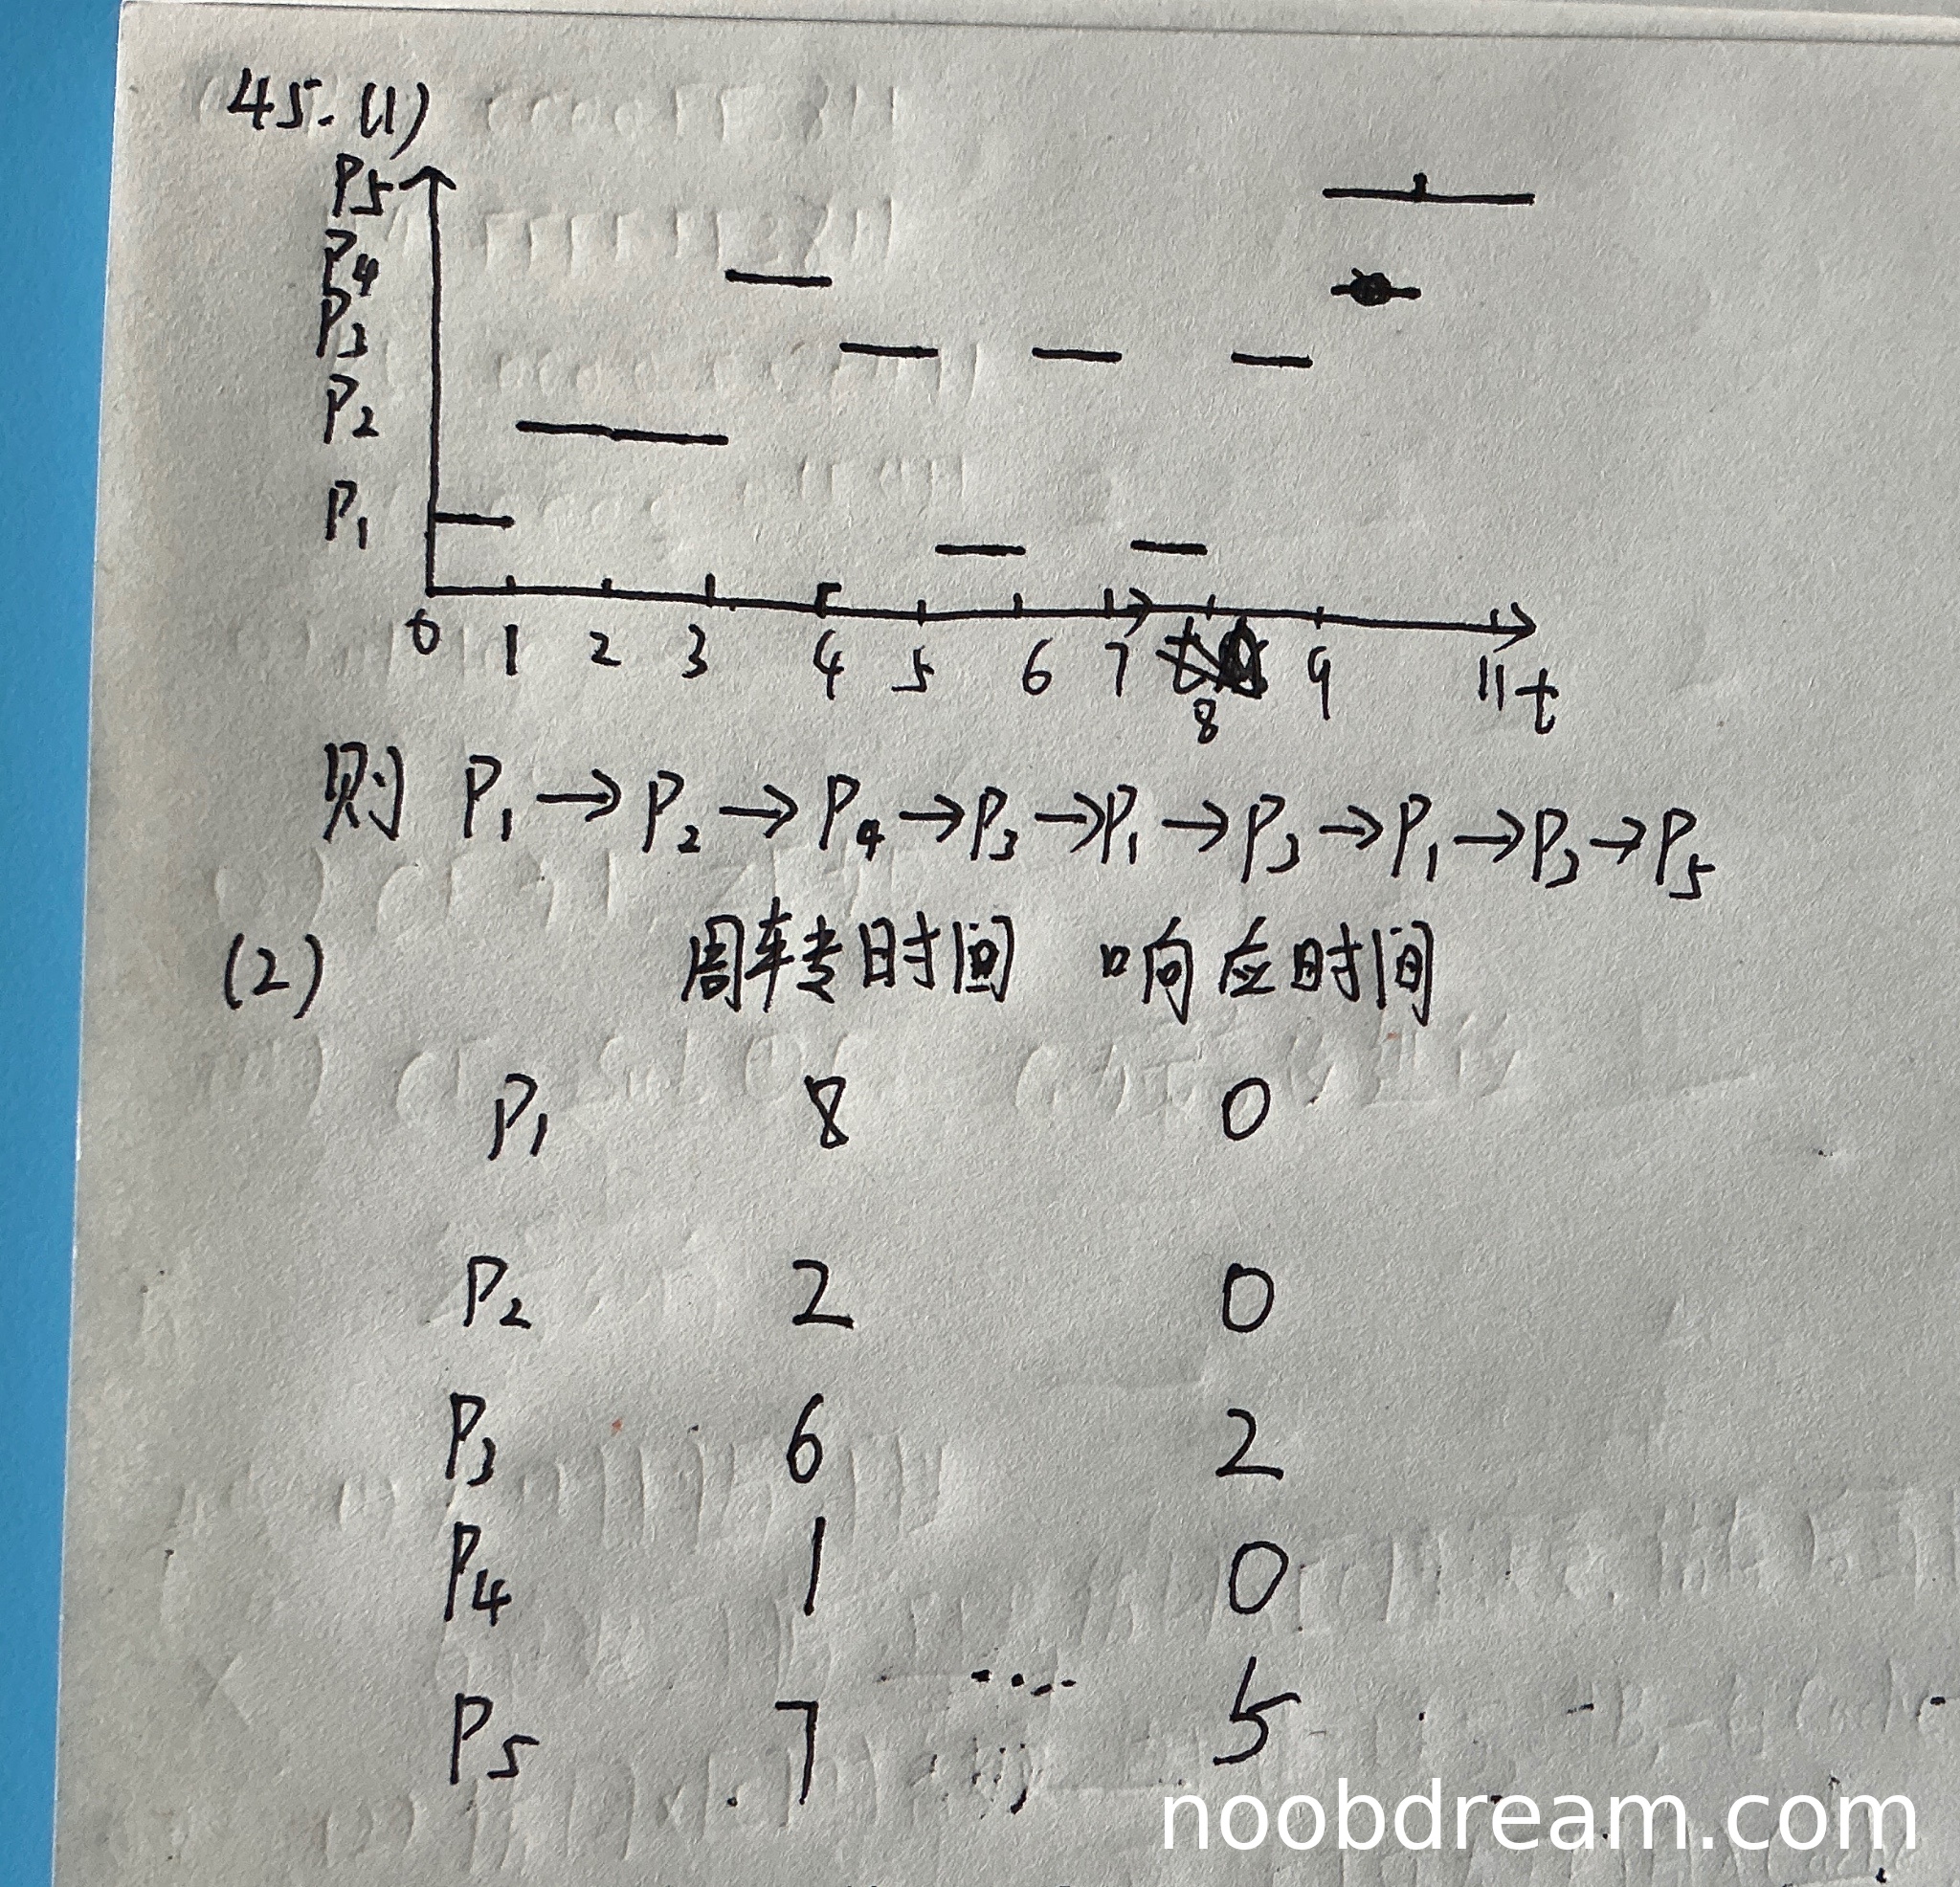 45.(1)
P5
P4
P3
P2
P1
0 1 2 3 4 5 6 7 8 9 11 t
则 P1→P2→P4→P3→P1→P3→P1→P3→P5
(2) 周转时间 响应时间
P1 8 0
P2 2 0
P3 6 2
P4 1 0
P5 7 5
noobdream.com